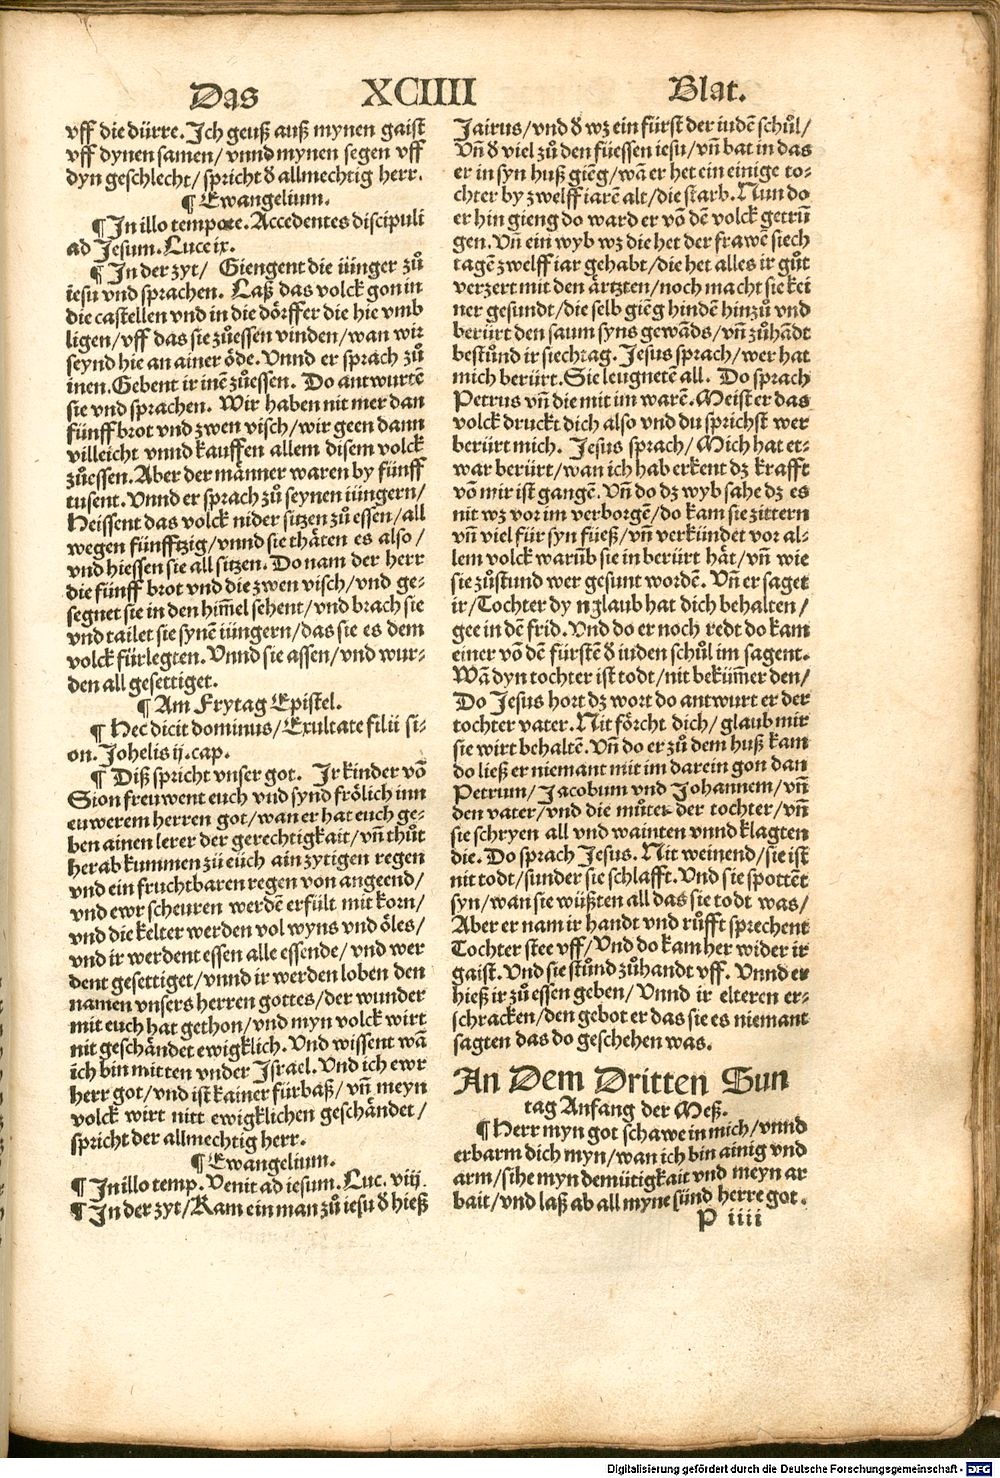 Das XCIIII Blat.
vff die dürre. Ich geuß auß mynen gaist
vff dynen samen/ vnnd mynen segen vff
dyn geschlecht/ spricht d̕ allmechtig herr.
¶ Ewangelium.
¶ In illo tempore. Accedentes discipuli
ad Jesum. Luce ix.
¶ In der zyt/ Giengent die iünger zů
iesu vnd sprachen. Laß das volck gon in
die castellen vnd in die dörffer die hie vmb
ligen/ vff das sie zůessen vinden/ wan wir
seynd hie an ainer öde. Vnnd er sprach zů
inen. Gebent ir inē zůessen. Do antwurtē
sie vnd sprachen. Wir haben nit mer dan
fünff brot vnd zwen visch/ wir geen dann
villeicht vnnd kauffen allem disem volck
zůessen. Aber der männer waren by fünff
tusent. Vnnd er sprach zů seynen iüngern/
Heissent das volck nider sitzen zů essen/ all
wegen fünfftzig/ vnnd sie thäten es also/
vnd hiessen sie all sitzen. Do nam der herr
die fünff brot vnd die zwen visch/ vnd ge-
segnet sie in den him̄el sehent/ vnd brach sie
vnd tailet sie synē iüngern/ das sie es dem
volck fürlegten. Vnnd sie assen/ vnd wur-
den all gesettiget.
¶ Am Frytag Epistel.
¶ Hec dicit dominus/ Exultate filii si-
on. Johelis ij. cap.
¶ Diß spricht vnser got. Ir kinder vō
Sion freuwent euch vnd synd frölich inn
euwerem herren got/ wan er hat euch ge-
ben ainen lerer der gerechtigkait/ vn̄ thůt
herab kummen zü eüch ain zytigen regen
vnd ein fruchtbaren regen von angeend/
vnd ewr scheuren werdē erfült mit korn/
vnd die kelter werden vol wyns vnd öles/
vnd ir werdent essen alle essende/ vnd wer
dent gesettiget/ vnnd ir werden loben den
namen vnsers herren gottes/ der wunder
mit euch hat gethon/ vnd myn volck wirt
nit geschändet ewigklich. Vnd wissent wā
ich bin mitten vnder Israel. Vnd ich ewr
herr got/ vnd ist kainer fürbaß/ vn̄ meyn
volck wirt nitt ewigklichen geschändet/
spricht der allmechtig herr.
¶ Ewangelium.
¶ In illo temp. Venit ad iesum. Luc. viij.
¶ In der zyt/ Kam ein man zů iesu d̕ hieß
Jairus/ vnd d̕ wz ein fürst der iudē schůl/
Vn̄ d̕ viel zů den füessen iesu/ vn̄ bat in das
er in syn huß giēg/ wā er het ein einige to-
chter by zwelff iarē alt/ die starb. Nun do
er hin gieng do ward er vō dē volck getrū
gen. Vn̄ ein wyb wz die het der frawē siech
tagē zwelff iar gehabt/ die het alles ir gůt
verzert mit den ärtzten/ noch macht sie kei
ner gesundt/ die selb giēg hindē hinzů vnd
berürt den saum syns gewāds/ vn̄ zůhādt
bestůnd ir siechtag. Jesus sprach/ wer hat
mich berürt. Sie leugnetē all. Do sprach
Petrus vn̄ die mit im warē. Meister das
volck druckt dich also vnd du sprichst wer
berürt mich. Jesus sprach/ Mich hat et-
war berürt/ wan ich hab erkent dz krafft
vō mir ist gangē. Vn̄ do dz wyb sahe dz es
nit wz vor im verborgē/ do kam sie zittern
vn̄ viel für syn füeß/ vn̄ verkündet vor al-
lem volck warūb sie in berürt hät/ vn̄ wie
sie zůstund wer gesunt wordē. Vn̄ er saget
ir/ Tochter dyn glaub hat dich behalten/
gee in dē frid. Vnd do er noch redt do kam
einer vō dē fürstē d̕ iuden schůl im sagent.
Wā dyn tochter ist todt/ nit beküm̄er den/
Do Jesus hort dz wort do antwurt er der
tochter vater. Nit förcht dich/ glaub mir
sie wirt behaltē. Vn̄ do er zů dem huß kam
do ließ er niemant mit im darein gon dan
Petrum/ Jacobum vnd Johannem/ vn̄
den vater/ vnd die můter der tochter/ vn̄
sie schryen all vnd wainten vnnd klagten
die. Do sprach Jesus. Nit weinend/ sie ist
nit todt/ sunder sie schlafft. Vnd sie spottēt
syn/ wan sie wüßten all das sie todt was/
Aber er nam ir handt vnd růfft sprechent
Tochter stee vff/ Vnd do kam her wider ir
gaist. Vnd sie stůnd zůhandt vff. Vnnd er
hieß ir zů essen geben/ Vnnd ir elteren er-
schracken/ den gebot er das sie es niemant
sagten das do geschehen was.
An Dem Dritten Sun
tag Anfang der Meß.
¶ Herr myn got schawe in mich/ vnnd
erbarm dich myn/ wan ich bin ainig vnd
arm/ sihe myn demütigkait vnd meyn ar
bait/ vnd laß ab all myne sünd herre got.
P iiii
Digitalisierung gefördert durch die Deutsche Forschungsgemeinschaft - DFG